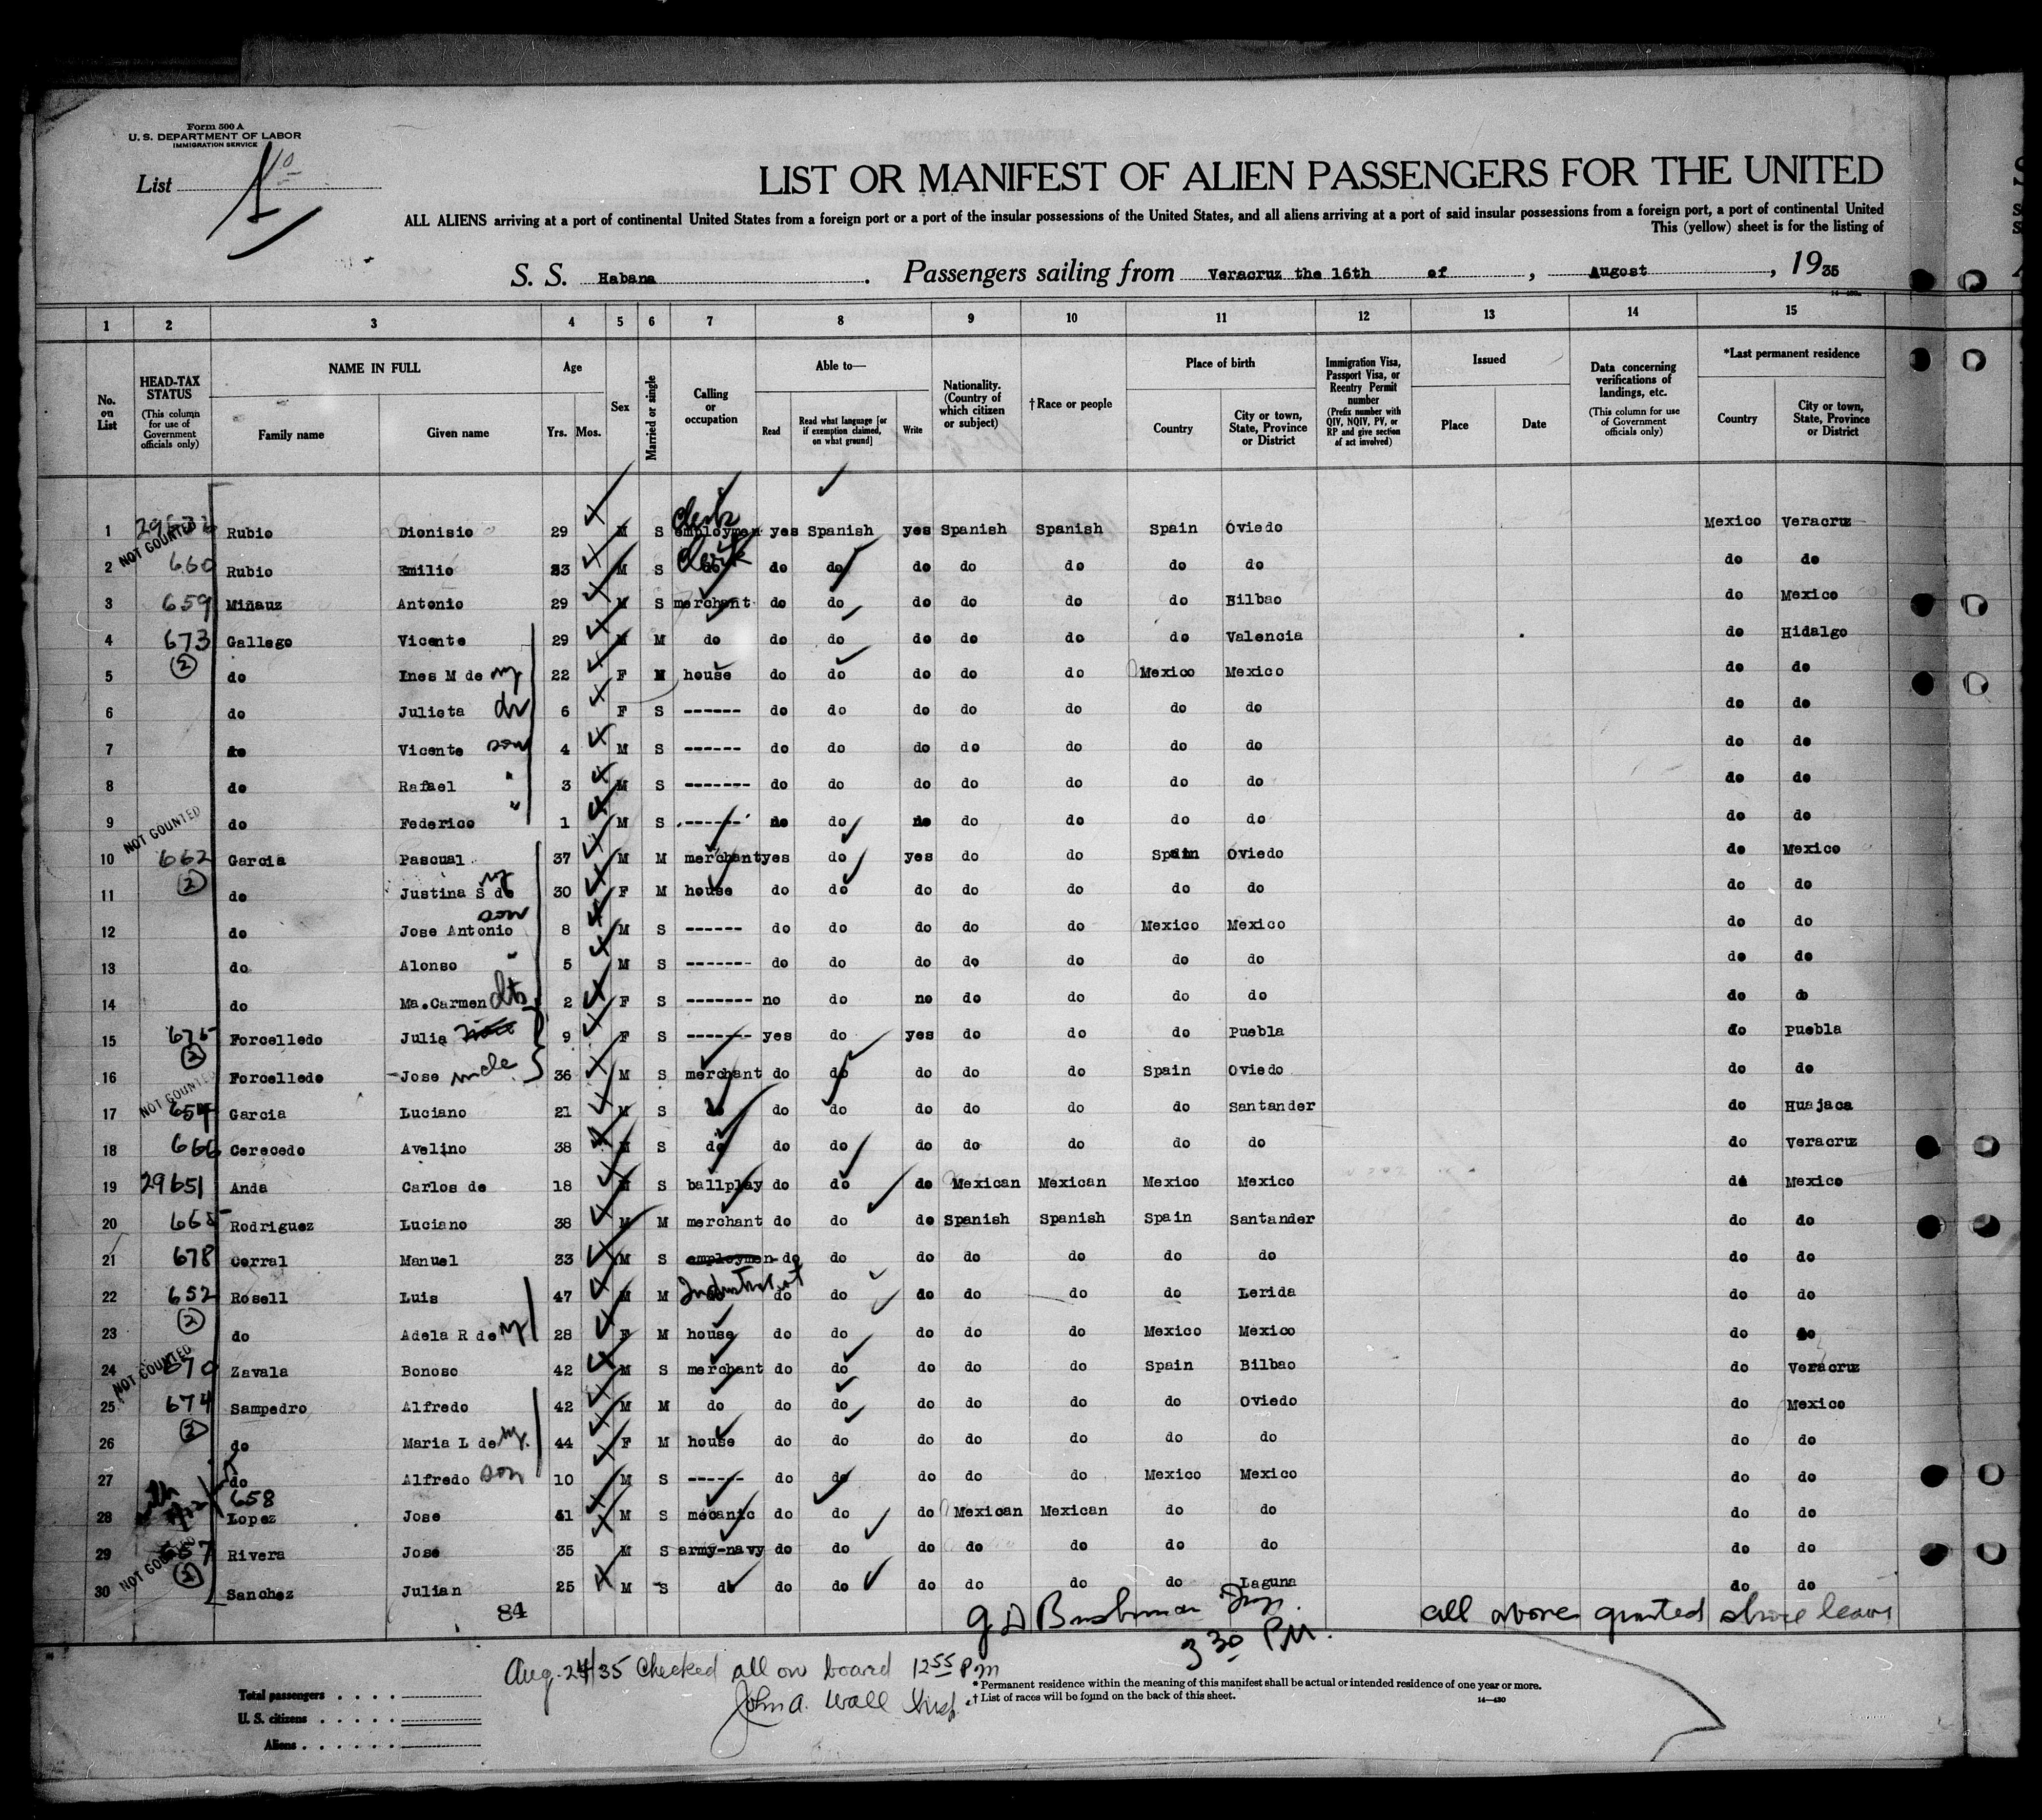 Form 500 A
U. S. DEPARTMENT OF LABOR
IMMIGRATION SERVICE
List
LIST OR MANIFEST OF ALIEN PASSENGERS FOR THE UNITED
ALL ALIENS arriving at a port of continental United States from a foreign port or a port of the insular possessions of the United States, and all aliens arriving at a port of said insular possessions from a foreign port, a port of continental United
This (yellow) sheet is for the listing of
S. S. Habana . Passengers sailing from Veracruz the 16th of , Augost , 1935
1 2 3 4 5 6 7 8 9 10 11 12 13 14 15
No. on List
HEAD-TAX STATUS (This column for use of Government officials only)
NAME IN FULL
Family name Given name
Age
Yrs. Mos.
Sex
Married or single
Calling or occupation
Able to—
Read Read what language [or if exemption claimed, on what ground] Write
Nationality. (Country of which citizen or subject)
†Race or people
Place of birth
Country City or town, State, Province or District
Immigration Visa, Passport Visa, or Reentry Permit number (Prefix number with QIV, NQIV, PV, or RP and give section of act involved)
Issued
Place Date
Data concerning verifications of landings, etc. (This column for use of Government officials only)
*Last permanent residence
Country City or town, State, Province or District
1 NOT COUNTED Rubio Dionisio 29 M S employmen clerk yes Spanish yes Spanish Spanish Spain Oviedo Mexico Veracruz
2 660 Rubio Emilio 33 M S do clerk do do do do do do do do do
3 659 Miñauz Antonio 29 M S merchant do do do do do do Bilbao do Mexico
4 673 Gallego Vicente 29 M M do do do do do do do Valencia do Hidalgo
5 2 do Ines M de 22 F M house do do do do do Mexico Mexico do do
6 do Julieta 6 F S ------ do do do do do do do do do
7 do Vicente son 4 M S ------ do do do do do do do do do
8 do Rafael " 3 M S ------- do do do do do do do do do
9 do Federico " 1 M S ------ no do no do do do do do do
10 NOT COUNTED 662 Garcia Pascual 37 M M merchant yes do yes do do Spain Oviedo do Mexico
11 2 do Justina S de 30 F M house do do do do do do do do do
12 do Jose Antonio son 8 M S ------ do do do do do Mexico Mexico do do
13 do Alonso " 5 M S ------- do do do do do do do do do
14 do Ma. Carmen 2 F S ------- no do no do do do do do do
15 675 2 Forcelledo Julia 9 F S ------- yes do yes do do do Puebla do Puebla
16 Forcelledo Jose uncle 36 M S merchant do do do do do Spain Oviedo do do
17 NOT COUNTED 654 Garcia Luciano 21 M S do do do do do do do Santander do Huajaca
18 666 Cerecedo Avelino 38 M S do do do do do do do do do Veracruz
19 29651 Anda Carlos de 18 M S ballplay do do do Mexican Mexican Mexico Mexico do Mexico
20 665 Rodriguez Luciano 38 M M merchant do do do Spanish Spanish Spain Santander do do
21 678 Corral Manuel 33 M S employmen do do do do do do do do do
22 652 Rosell Luis 47 M M do Industrialist do do do do do do Lerida do do
23 2 do Adela R de 28 F M house do do do do do Mexico Mexico do do
24 NOT COUNTED 670 Zavala Bonoso 42 M S merchant do do do do do Spain Bilbao do Veracruz
25 674 Sampedro Alfredo 42 M M do do do do do do do Oviedo do Mexico
26 2 do Maria L de 44 F M house do do do do do do do do do
27 do Alfredo son 10 M S ------ do do do do do Mexico Mexico do do
28 658 Lopez Jose 41 M S mecanic do do do Mexican Mexican do do do do
29 NOT COUNTED Rivera José 35 M S army-navy do do do do do do do do do
30 2 Sanchez Julian 25 M S do do do do do do do Laguna do do
84
G D Bushman Insp. all above granted shore leave
3 30 PM.
Aug. 24/35 Checked all on board 12 55 PM
John A. Wall Insp.
Total passengers
U. S. citizens
Aliens
* Permanent residence within the meaning of this manifest shall be actual or intended residence of one year or more.
† List of races will be found on the back of this sheet.
14—430